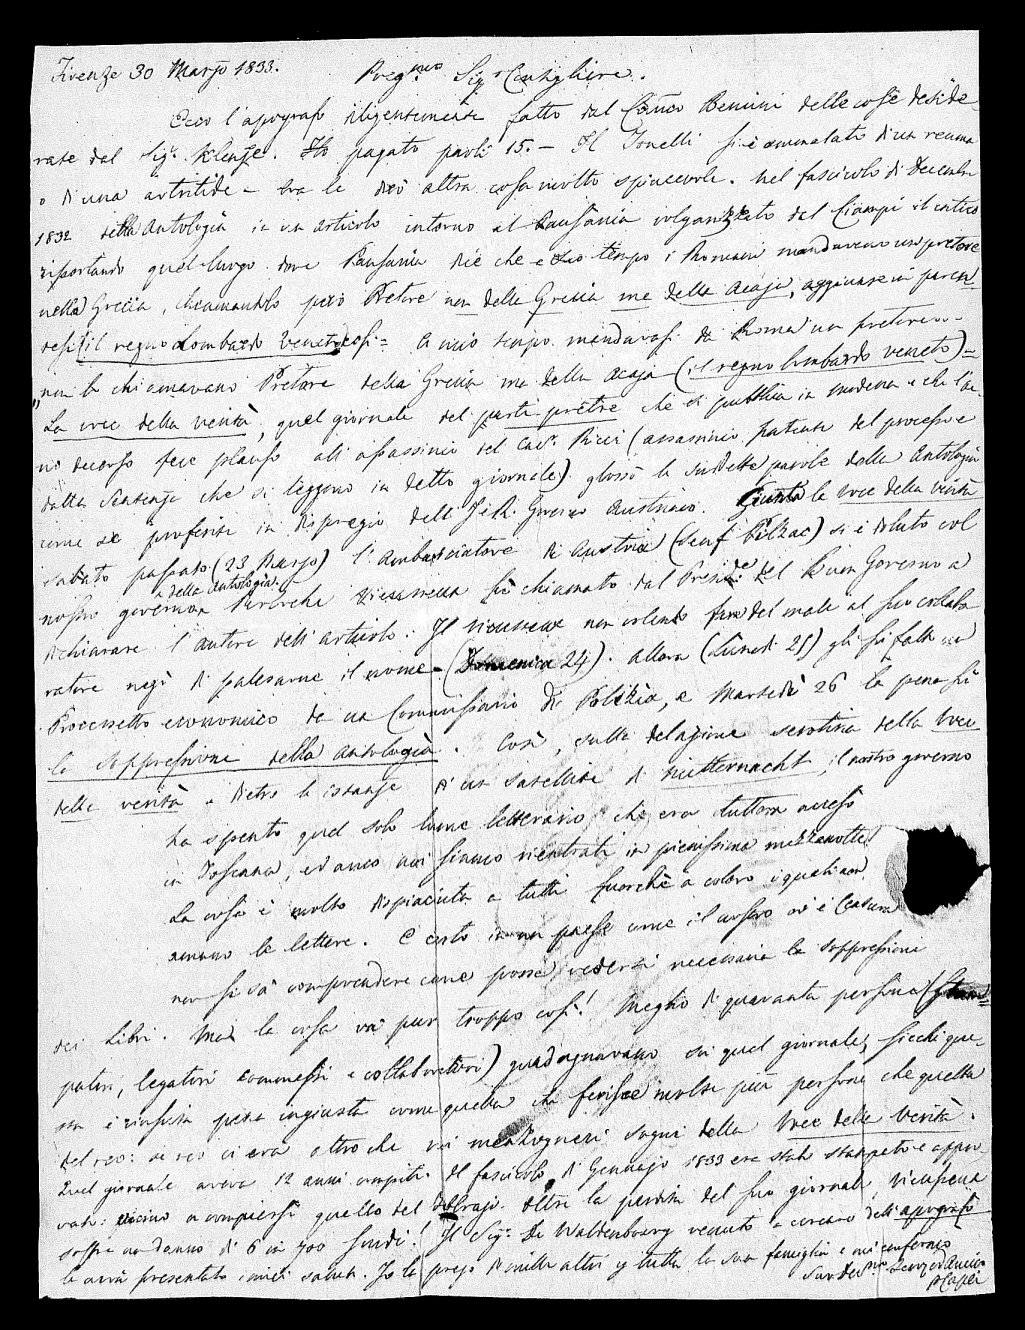 Firenze 30 Marzo 1833.
Preg.mo Sig.r Consigliere.
Ecco l'apografo diligentemente fatto dal Bencini delle cose deside
rate dal Sig.r Klenze. Ho pagato paoli 15. – Il Tonelli si è ammalato di un reuma
o di una artritide – Ora le dirò altra cosa molto spiacevole. Nel fascicolo di Decembre
1832 della Antologia in un articolo intorno al Pausania volgarizzato dal Ciampi il critico
riportando quel luogo dove Pausania dice che a suo tempo i Romani mandavano un pretore
nella Grecia, chiamandolo però Pretore non della Grecia ma della Acaja, aggiunse in paren
tesi (il regno Lombardo Veneto) così = A mio tempo mandavasi da Roma un pretore
" non lo chiamavano Pretore della Grecia ma della Acaja (il regno lombardo veneto) =
La voce della verità, quel giornale del parti prêtre che si pubblica in Modena e che l'an
no decorso fece plauso all'assassinio del Cav.r Ricci (assassinio patente dal processo e
dalla sentenza che si leggono in detto giornale) glossò le suddette parole della Antologia
come se proferite in dispregio dell'I. e R. Governo Austriaco. Giunta la voce della verità
sabato passato (23 Marzo) l'Ambasciatore di Austria (Senf Pilzac) si è doluto col
nostro governo della Antologia. Perlochè Vieusseux fù chiamato dal Presid.e del Buon Governo a
dichiarare l'autore dell'articolo. Il Vieusseux non volendo fare del male al suo collabo
ratore negò di palesarne il nome – (Domenica 24). Allora (Lunedì 25) gli fu fatto un
Processetto economico da un Commissario di Polizia, e Martedì 26 la pena fù
la soppressione della Antologia. Così, sulla delazione della Voce
della verità e dietro le istanze d'un satellite di Mitternacht, il nostro governo
ha spento quel solo lume letterario che era tuttora acceso
in Toscana, ed anco noi siamo rientrati in pienissima mezzanotte!
La cosa è molto dispiaciuta a tutti fuorchè a coloro i quali non
amano le lettere. E certo in un paese come il nostro ov'è Censura
non si sà comprendere come possa vedersi necessaria la soppressione
dei Libri. Ma la cosa va pur troppo così! Meglio di quaranta persone
patori, legatori commessi e collaboratori) guadagnavano su quel giornale, sicchè que
sta è riuscita pena ingiusta come quella che ferisce molte più persone che quella
del reo: se reo ci era oltre che nei menzogneri sogni della Voce della verità.
Quel giornale aveva 12 anni compiti. Il fascicolo di Gennajo 1833 era stato stampato e appro
vato: vicino a compiersi quello del Febbrajo. Oltre la perdita del suo giornale, Vieusseux
soffre un danno di 6 in 700 scudi! Il Sig.r De Waldenbourg venuto a cercare dell'apografo
le avrà presentato i miei saluti. Io la prego di mille altri p tutta la sua famiglia e mi confermo
Suo Dev.mo